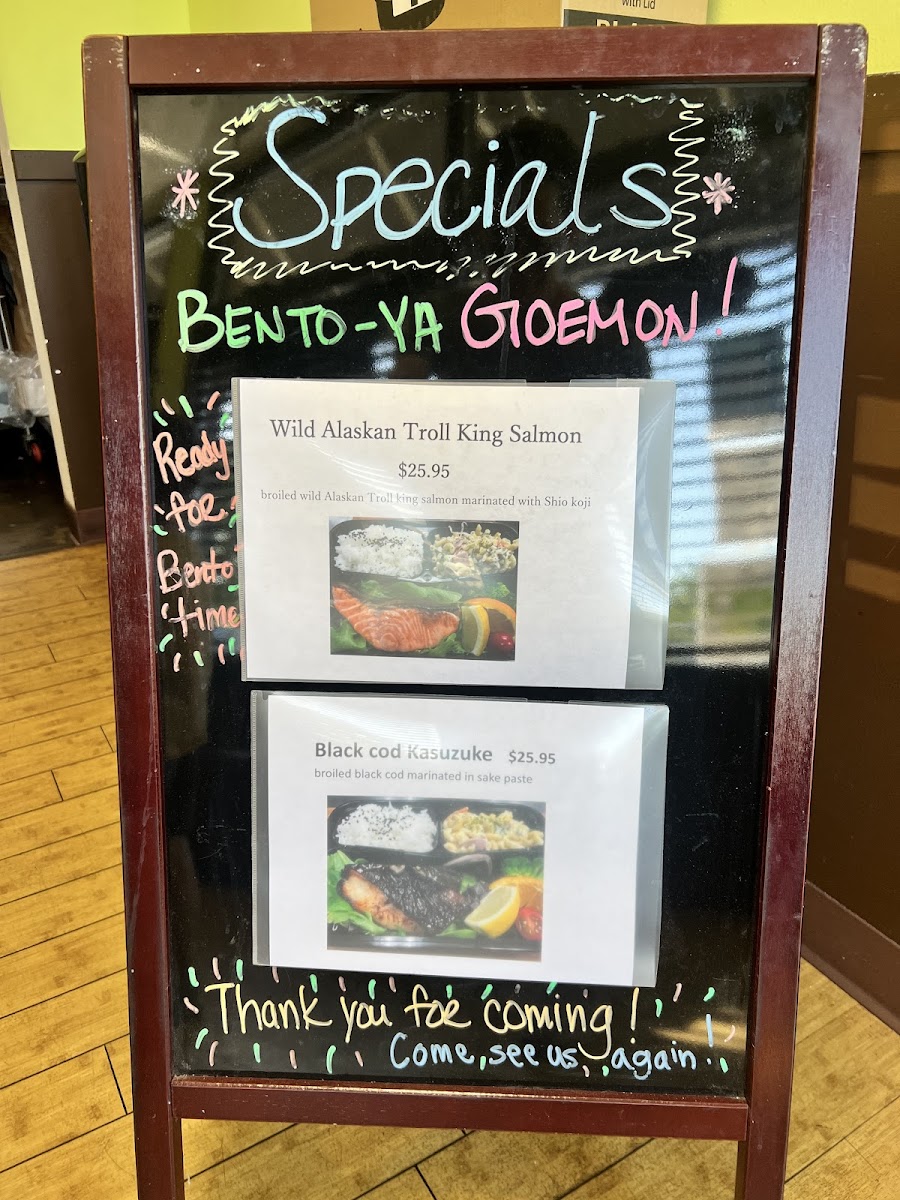 with Lid
Specials
BENTO-YA GOEMON!
Ready
for
Bento
time
Wild Alaskan Troll King Salmon
$25.95
broiled wild Alaskan Troll king salmon marinated with Shio koji
Black cod Kasuzuke $25.95
broiled black cod marinated in sake paste
Thank you for coming!
Come, see us, again!